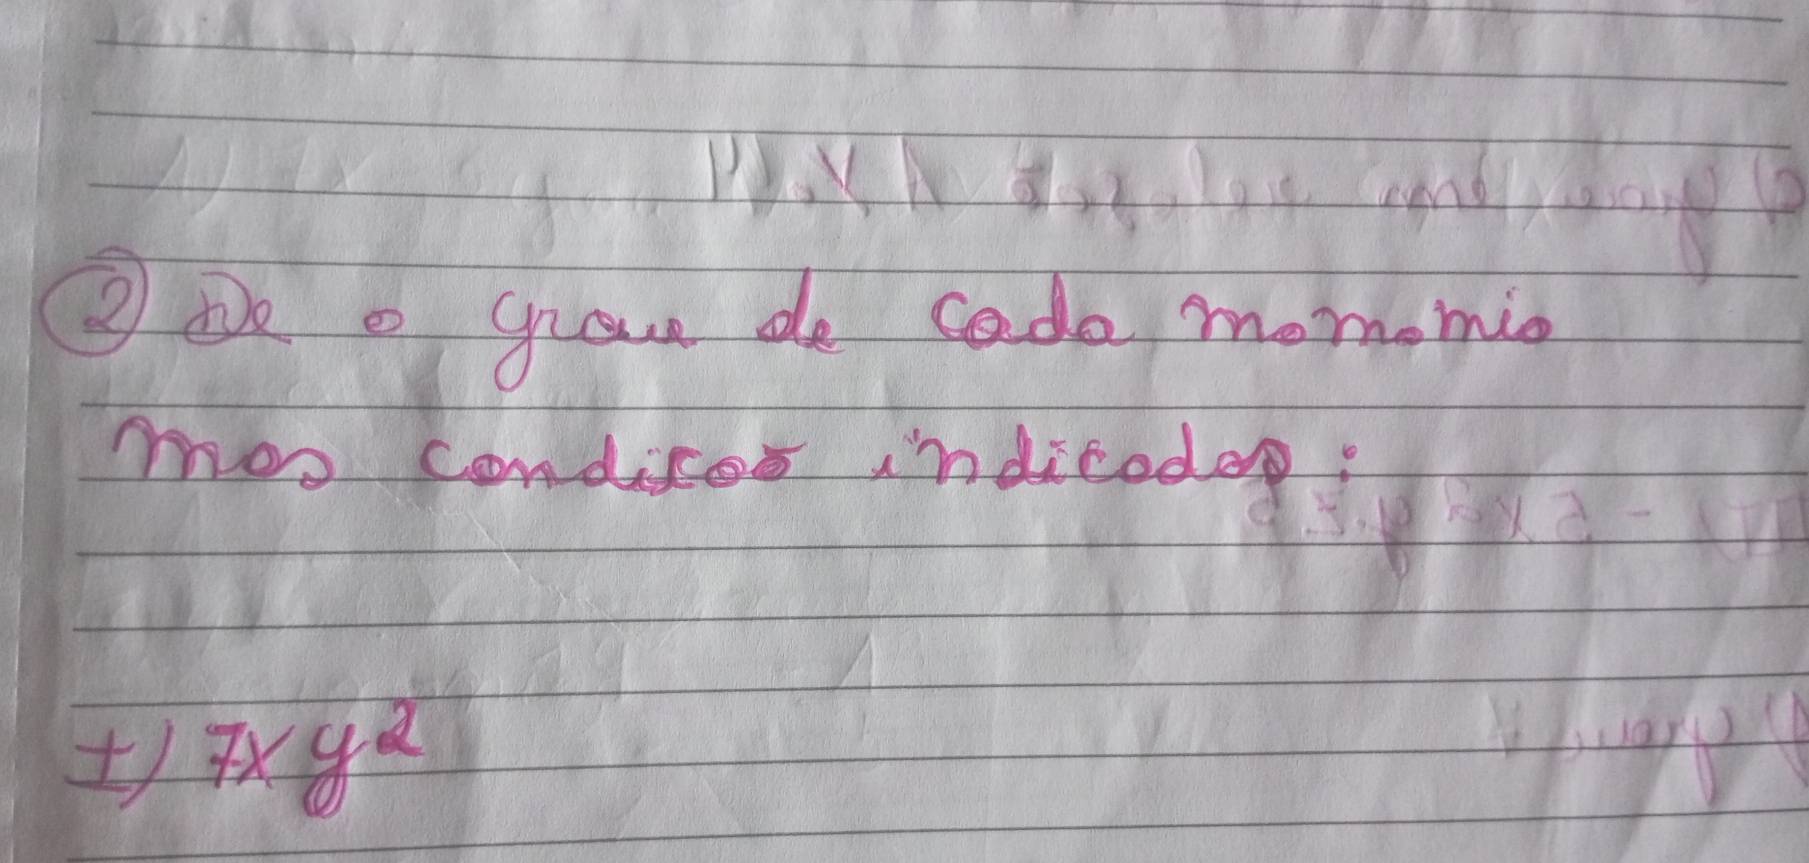 ② De o grau de cada monomio
nas condiçoes indicadas:
I) 7xy²